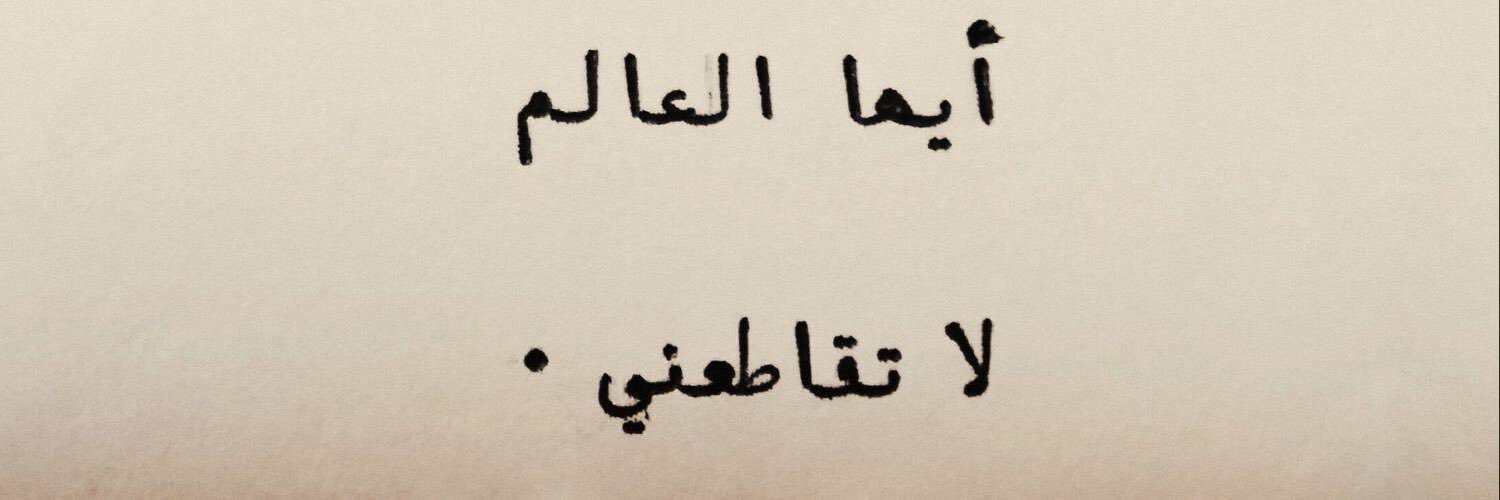 أيها العالم
لا تقاطعني .